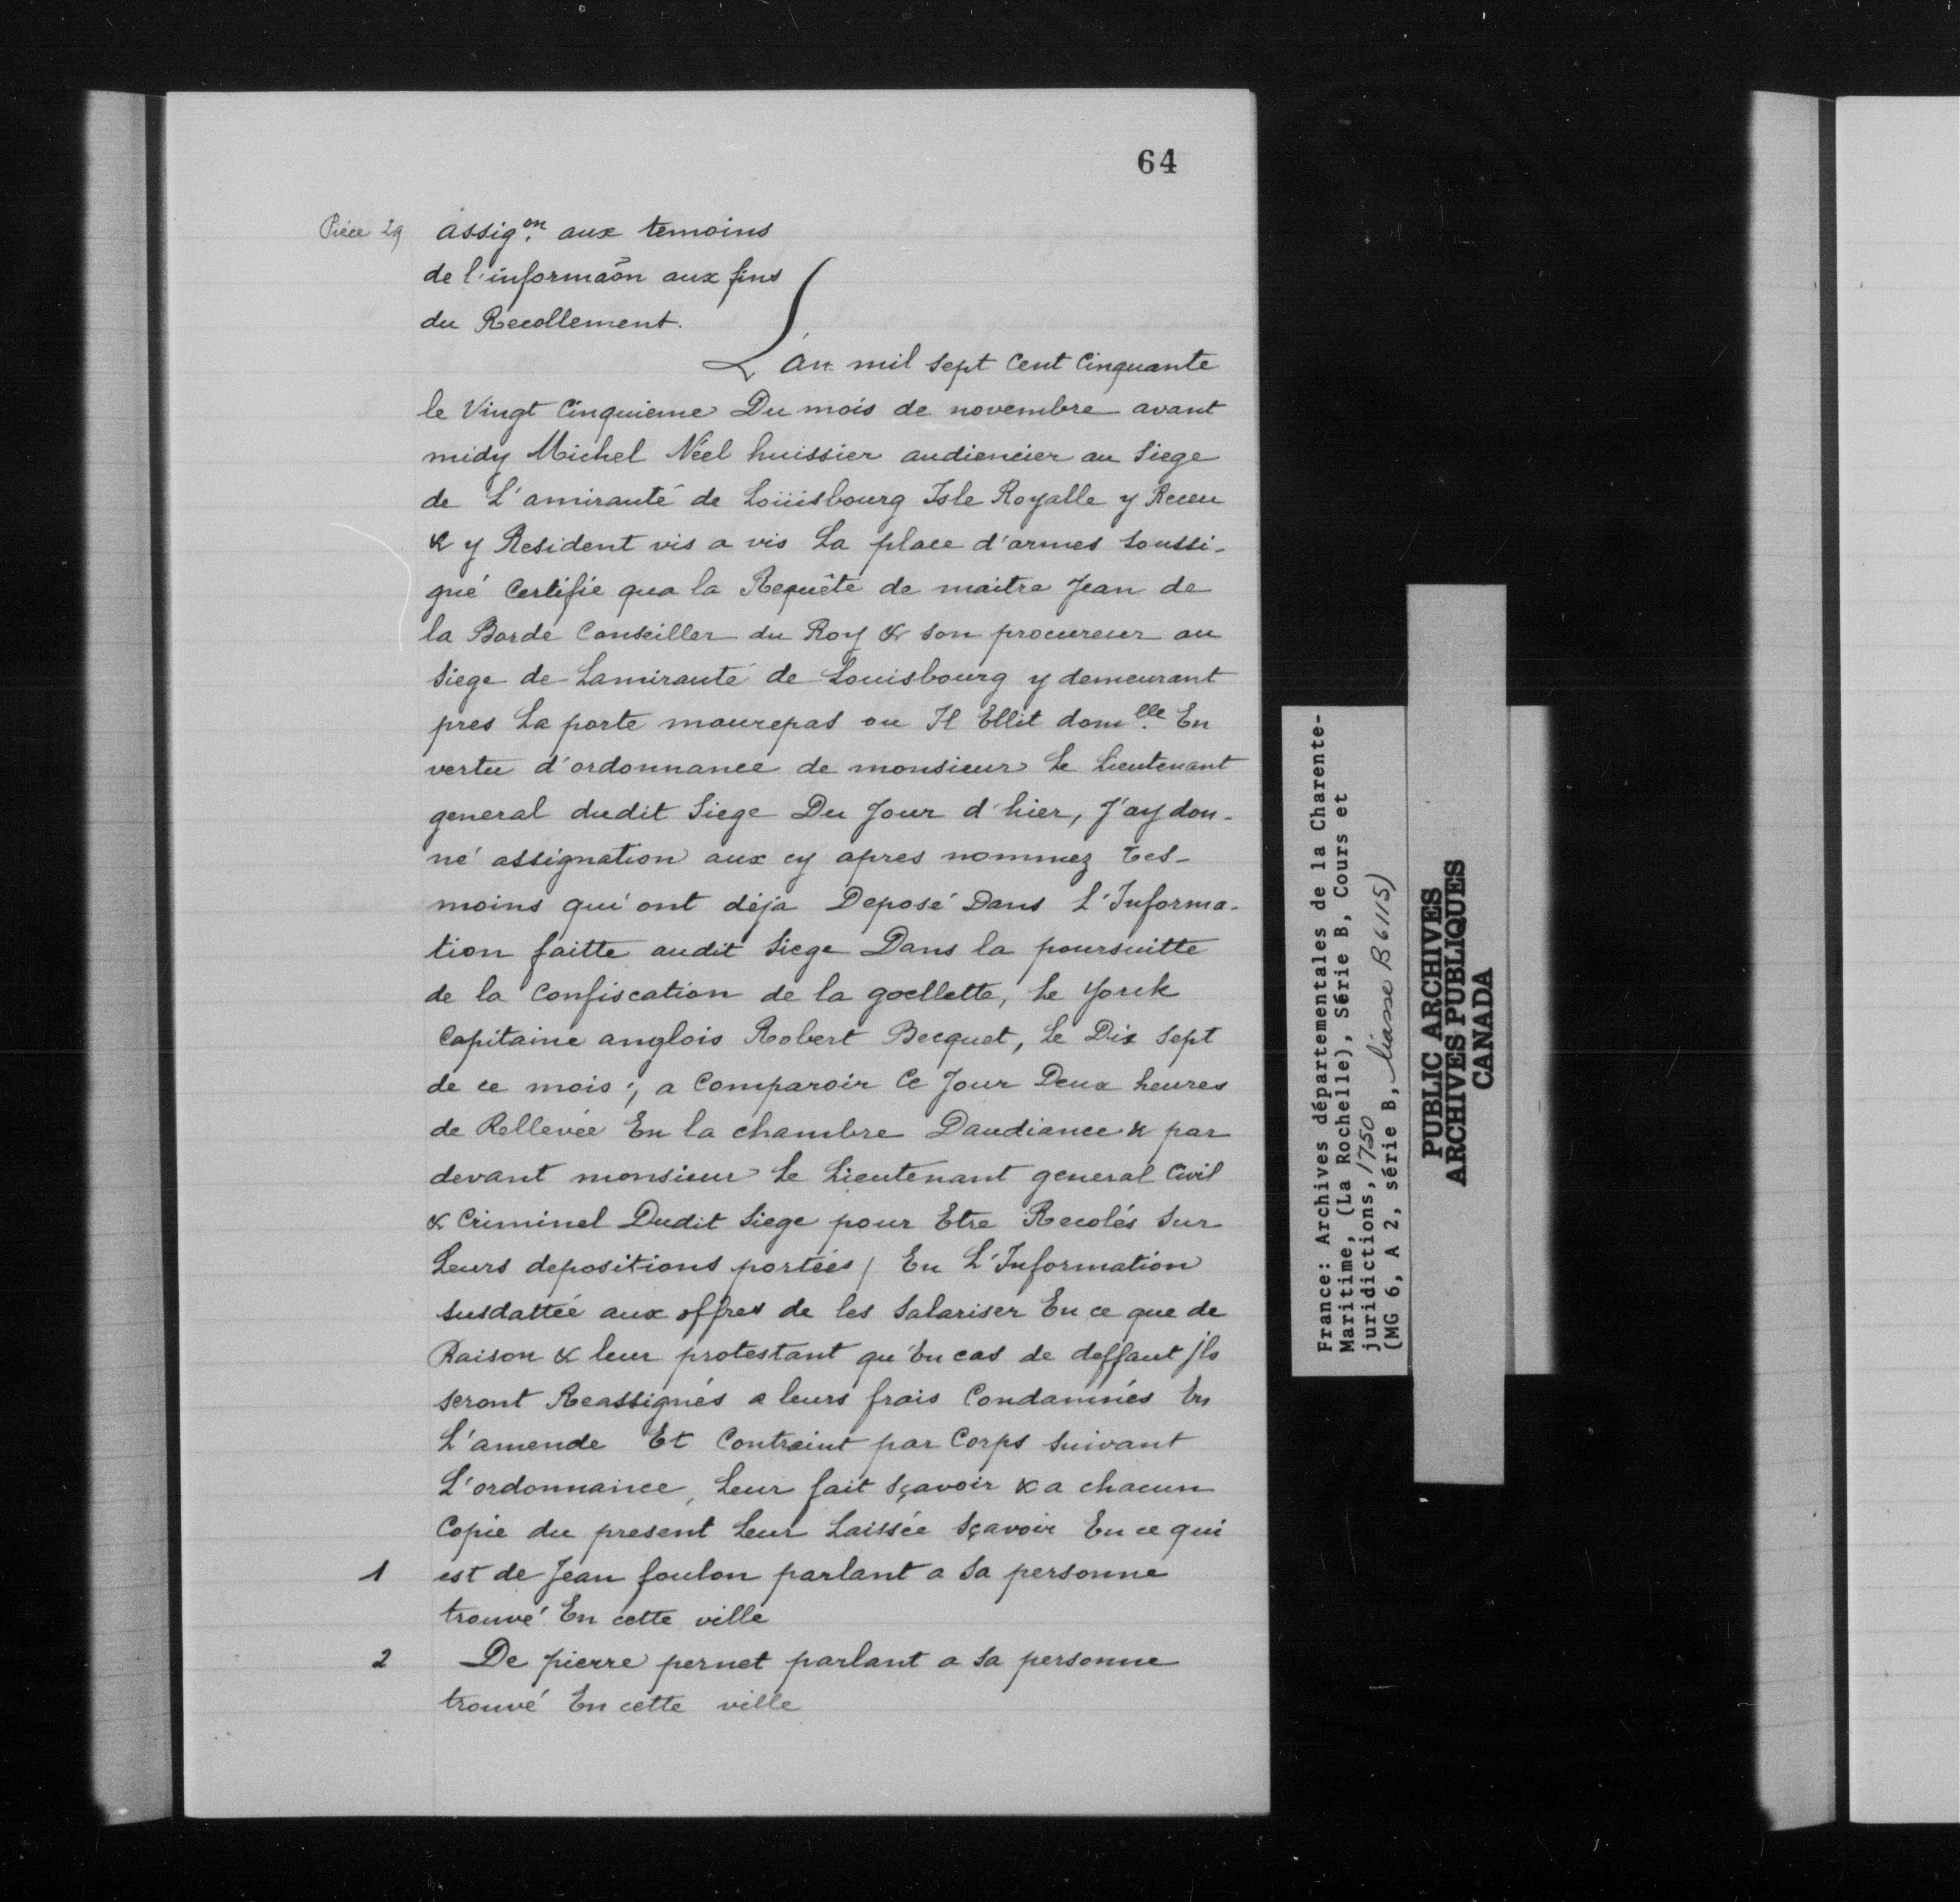 64
Pièce 29 assig.on aux temoins
de l'informaõn aux fins
du Recollement.
L'an mil sept Cent Cinquante
le Vingt Cinquieme Du mois de novembre avant
midy Michel Néel huissier audiencier au Siege
de L'amirauté de Loüisbourg Isle Royalle y Receu
& y Resident vis a vis La place d'armes Soussi-
gné Certifie qua la Requête de maitre Jean de
la Borde Conseiller du Roy & son procureur au
Siege de Lamirauté de Louisbourg y demeurant
pres La porte maurepas ou Il Ellit dom.lle En
vertu d'ordonnance de monsieur Le Lieutenant
general dudit Siege Du Jour d'hier, J'ay don-
né assignation aux cy apres nommez tes-
moins qui ont déja Deposé Dans L'Informa-
tion faitte audit Siege Dans la poursuitte
de la Confiscation de la goellette, Le Yorck
Capitaine anglois Robert Becquet, Le Dix Sept
de ce mois; a Comparoir Ce Jour Deux heures
de Rellevée En la chambre Daudiance & par
devant monsieur Le Lieutenant general Civil
& Criminel Dudit Siege pour Etre Recolés Sur
Leurs depositions portées / En L'Information
susdattée aux offres de les Salariser En ce que de
Raison & leur protestant qu'En cas de deffaut jls
seront Reassignés a leurs frais Condamnés En
L'amende Et Contraint par Corps suivant
L'ordonnance, Leur fait sçavoir & a chacun
Copie du present Leur Laissée Sçavoir En ce qui
1 est de Jean foulon parlant a Sa personne
trouvé En cette ville
2 De pierre pernet parlant a Sa personne
trouvé En cette ville
France: Archives départementales de la Charente-
Maritime, (La Rochelle), Série B, Cours et
juridictions, 1750
(MG 6, A 2, série B, liasse B 6115)
PUBLIC ARCHIVES
ARCHIVES PUBLIQUES
CANADA